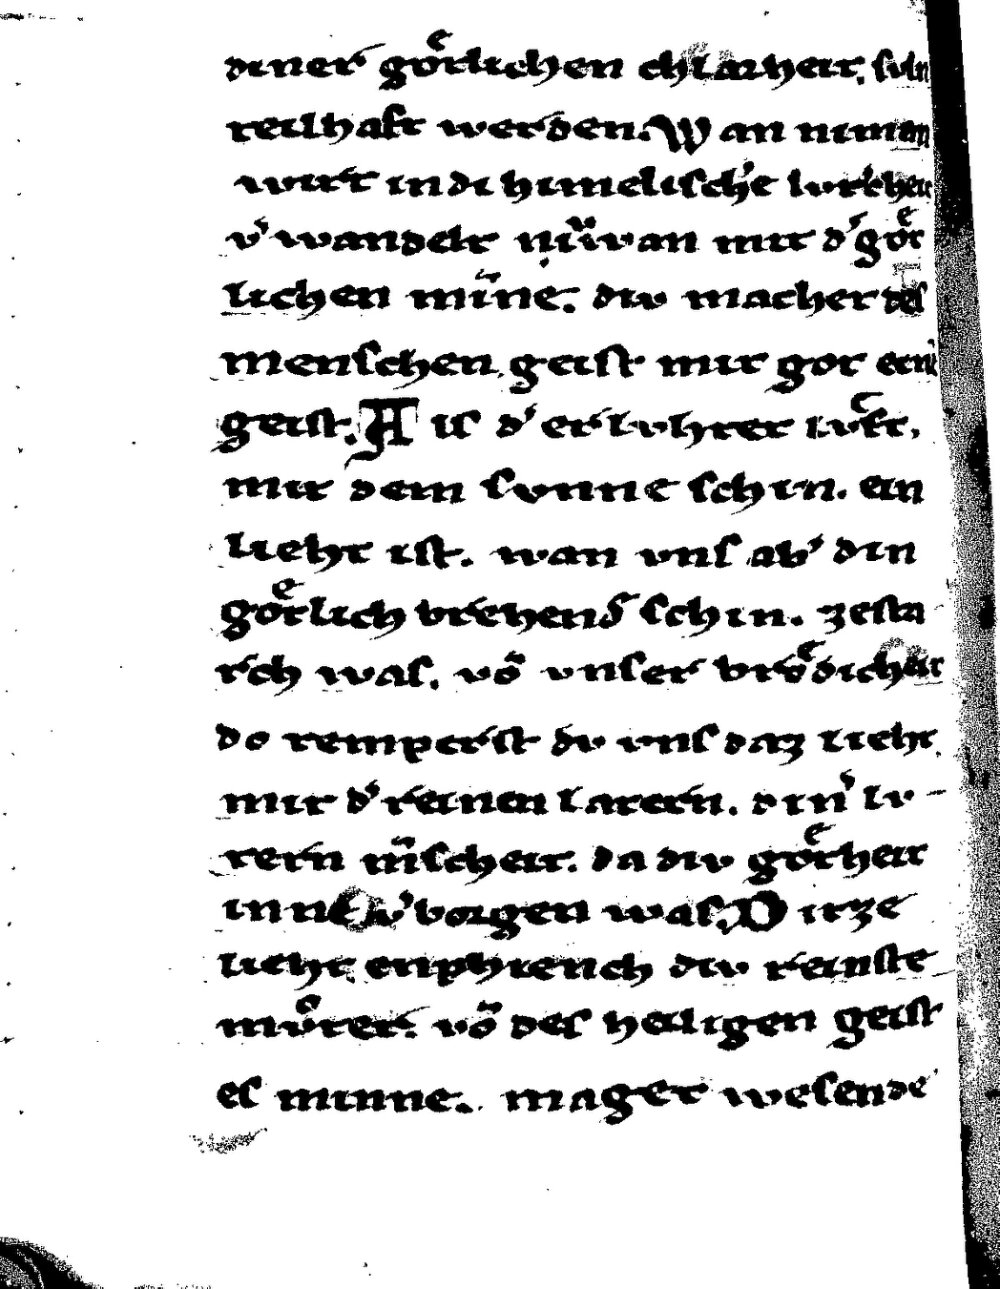 diner goͤtlichen chlarheit. suln
teilhaft werden. Wan niman
wirt in di himelisch'e lvterheit
v'wandelt niẘan mit d' goͤt
lichen min̄e. div machet des
menschen geist mit got ein
geist. Als d' erlvhter lvͤft,
mit dem svnne schin. ein
lieht ist. wan vns ab' din
goͤtlich brehend' schin. zesta
rch was. vō vnser broͤdicheit
do tempertst dv vns daz lieht
mit d' reinen latern. din' lv-
tern m̄scheit. da div goͤtheit
inne v'borgen was. Ditze
lieht enphiench div reinste
mvͦter. vō des heiligen geist
es minne. mager wesende